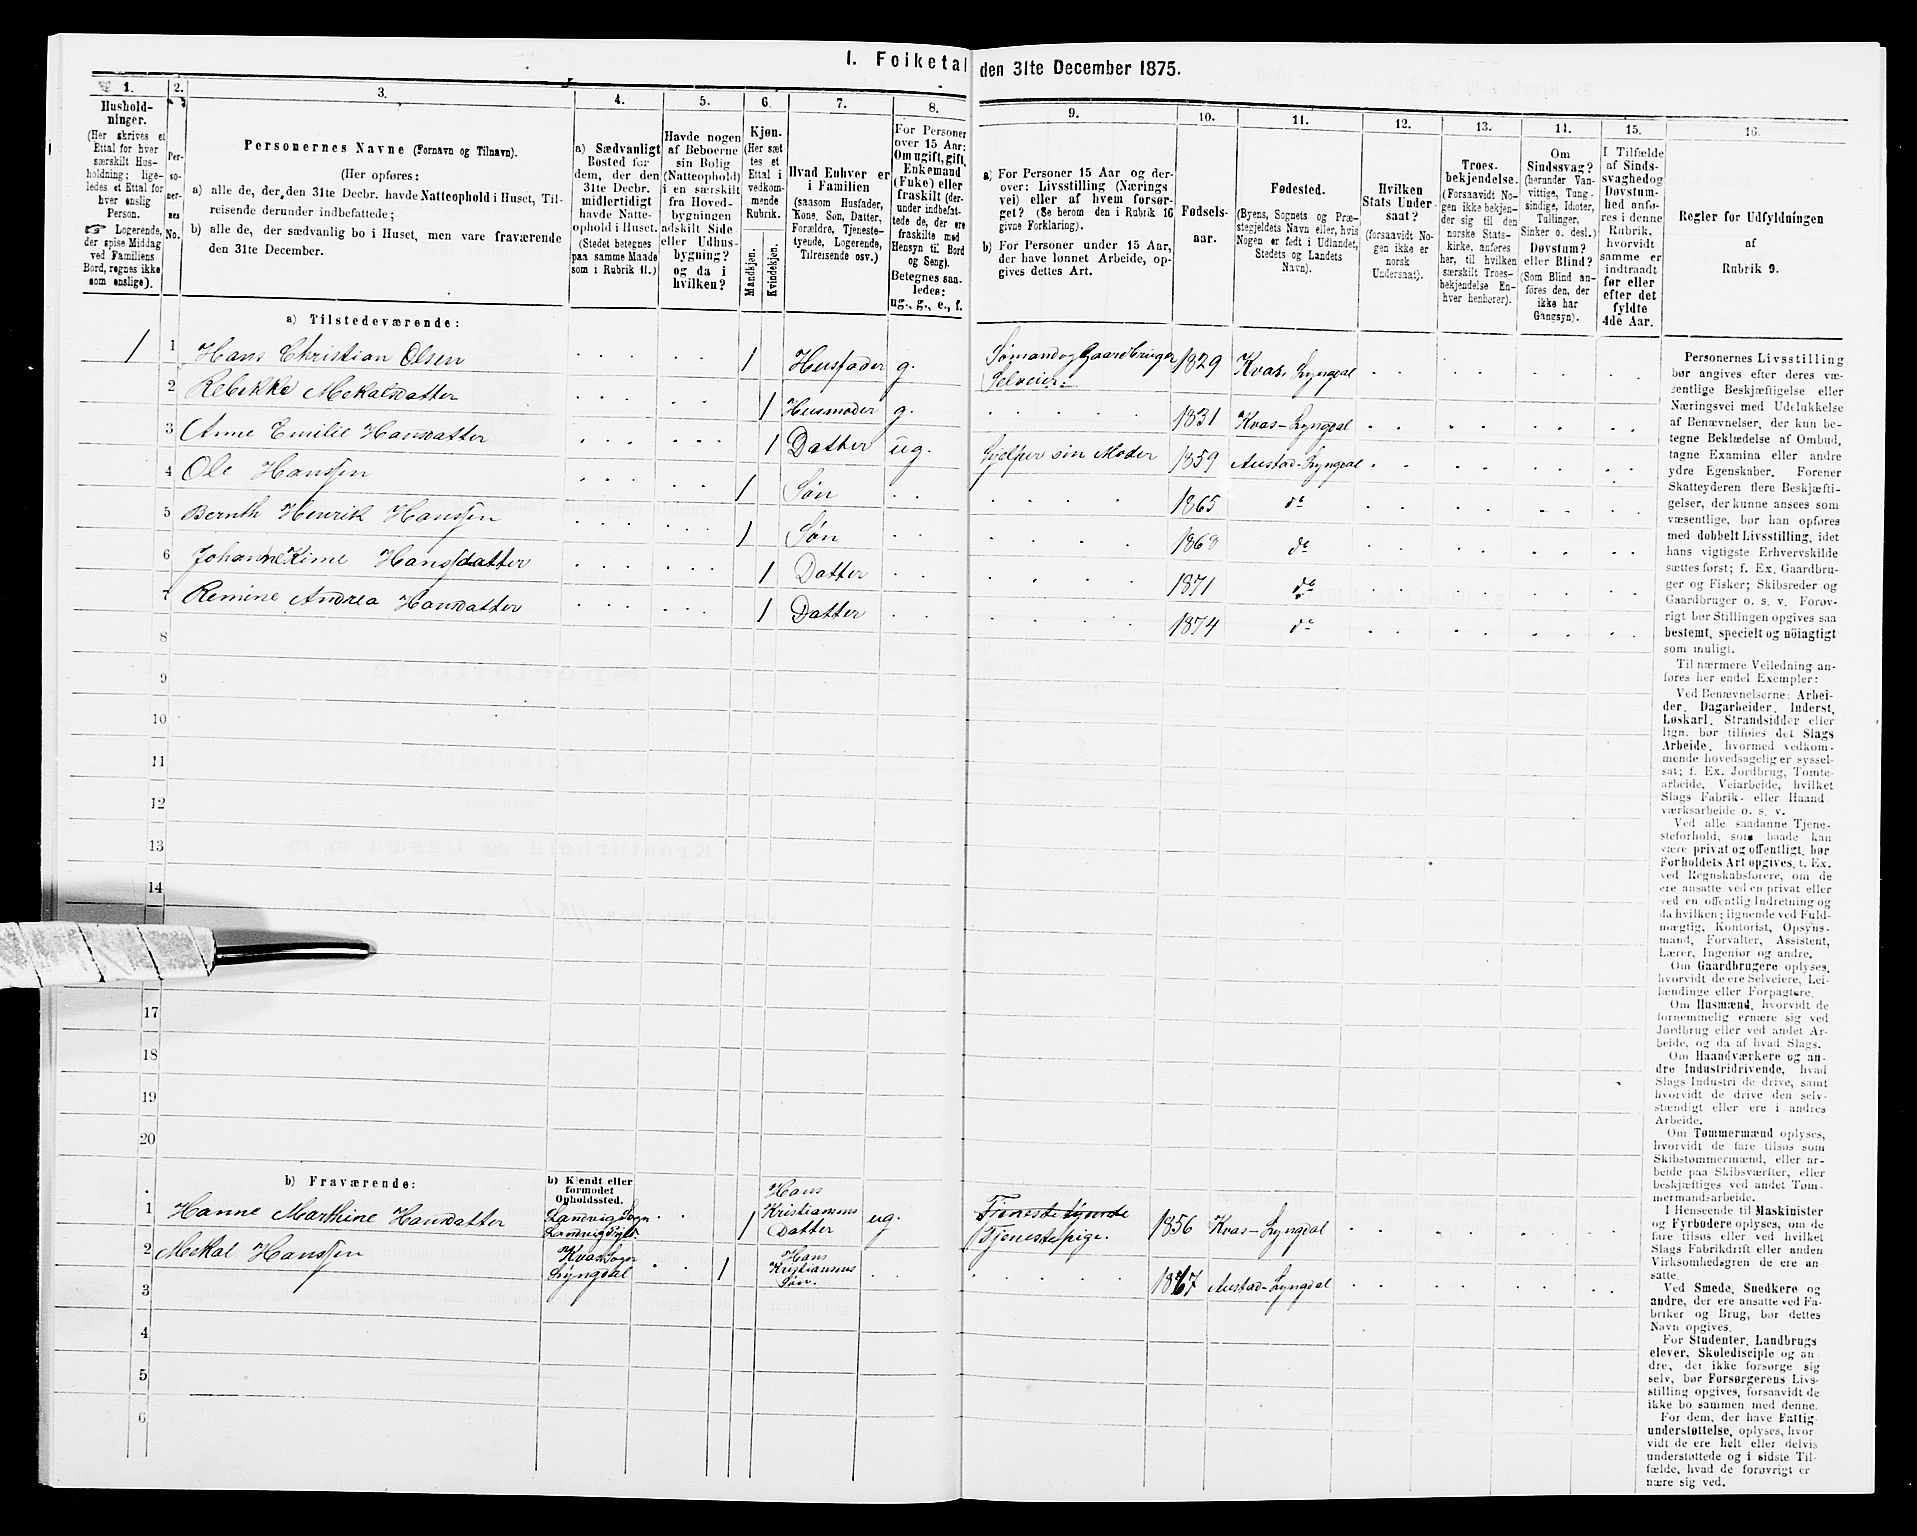 I. Folketal den 31te December 1875.
1. 2. 3. 4. 5. 6. 7. 8. 9. 10. 11. 12. 13. 14. 15. 16.
Hushold-
ninger.
(Her skrives et
Ettal for hver
særskilt Hus-
holdning; lige-
ledes et Ettal for
hver enslig
Person.
☞ Logerende,
der spise Middag
ved Familiens
Bord, regnes ikke
som enslige).
Per-
so-
ner-
nes
No.
Personernes Navne (Fornavn og Tilnavn).
(Her opføres:
a) alle de, der den 31te Decbr. havde Natteophold i Huset, Til-
reisende derunder indbefattede;
b) alle de, der sædvanlig bo i Huset, men vare fraværende
den 31te December.
a) Sædvanligt
Bosted for
dem, der den
31te Decbr.
midlertidigt
havde Natte-
ophold i Huset.
(Stedet betegnes
paa samme Maade
som i Rubrik 11.)
Havde nogen
af Beboerne
sin Bolig
(Natteophold)
i en særskilt
fra Hoved-
bygningen
adskilt Side
eller Udhus-
bygning?
og da i
hvilken?
Kjøn.
(Her sæt
tes et
Ettal i
vedkom-
mende
Rubrik.
Mandkjøn.
Kvindekjøn.
Hvad Enhver er
i Familien
(saasom Husfader,
Kone, Søn, Datter,
Forældre, Tjeneste-
tyende, Logerende,
Tilreisende osv.)
For Personer
over 15 Aar:
Om ugift, gift,
Enkemand
(Fuke) eller
fraskilt (der-
under indbefat-
tede de, der ere
fraskilte med
Hensyn til Bord
og Seng).
Betegnes saa-
ledes:
ug., g., e., f.
a) For Personer 15 Aar og der-
over: Livsstilling (Nærings
vei) eller af hvem forsør-
get? (Se herom den i Rubrik 16
givne Forklaring).
b) For Personer under 15 Aar,
der have lønnet Arbeide, op-
gives dettes Art.
Fødsels-
aar.
Fødested.
(Byens, Sognets og Præ-
stegjeldets Navn eller, hvis
Nogen er født i Udlandet,
Stedets og Landets
Navn).
Hvilken
Stats Under-
saat?
(forsaavidt No-
gen ikke er
norsk
Undersaat).
Troes-
bekjendelse.
(Forsaavidt No-
gen ikke bekjen-
der sig til den
norske Stats-
kirke, anføres
her, til hvilken
særskilt Troes-
bekjendelse En-
hver henhører).
Om
Sindssvag?
(herunder Van-
vittige, Tung-
sindige, Idioter,
Tullinger,
Sinker o. desl.)
Døvstum?
eller Blind?
(Som Blind an-
føres den, der
ikke har
Gangsyn).
I Tilfælde
af Sinds-
svaghed og
Døvstum-
hed anfø-
res i denne
Rubrik,
hvorvidt
samme er
indtraadt
før eller
efter det
fyldte
4de Aar.
Regler for Udfyldningen
af
Rubrik 9.
a) Tilstedeværende:
1 1 Hans Christian Olsen 1 Husfader g. Sømand og Gaardbruger Selveier. 1829 Kvas, Lyngdal
2 Rebekke Mekalsdatter 1 Husmoder g. 1831 Kvas-Lyngdal
3 Anne Emilie Hansdatter 1 Datter ug. Hjelper sin Moder 1859 Austad-Lyngdal
4 Ole Hanssen 1 Søn 1865 do
5 Bernth Henrik Hanssen 1 Søn 1868 do
6 Johanne Kime Hanssdatter 1 Datter 1871 do
7 Remine Andrea Hansdatter 1 Datter 1874 do
8
10
11
12
13
14
17
18
19
20
b) Fraværende:
b) Kjendt eller
formodet
Opholdssted.
1 Hanne Marthine Hansdatter Landvig Sogn Landvig Pgld. 1 Hans Kristiansens Datter ug. Tjenestetyende Tjenestepige. 1856 Kvas-Lyngdal
2 Mekal Hanssen Kvas Sogn Lyngdal 1 Hans Kristiansens Søn. 1867 Austad-Lyngdal
3
4
5
6
Personernes Livsstilling
bør angives efter deres væ-
sentlige Beskjæftigelse eller
Næringsvei med Udelukkelse
af Benævnelser, der kun be-
tegne Beklædelse af Ombud,
tagne Examina eller andre
ydre Egenskaber. Forener
Skatteyderen flere Beskjæfti-
gelser, der kunne ansees som
væsentlige, bør han opføres
med dobbelt Livsstilling, idet
hans vigtigste Erhvervskilde
sættes først; f. Ex. Gaardbru-
ger og Fisker; Skibsreder og
Gaardbruger o. s. v. Forøv-
rigt bør Stillingen opgives saa
bestemt, specielt og nöiagtigt
som muligt.
Til nærmere Veiledning an-
føres her endel Exempler:
Ved Benævnelserne: Arbei-
der, Dagarbeider, Inderst,
Løskarl, Strandsidder eller
lign. bør tilføies det Slags
Arbeide, hvormed vedkom-
mende hovedsagelig er syssel-
sat; f. Ex. Jordbrug, Tomte-
arbeide, Veiarbeide, hvilket
Slags Fabrik- eller Haand
værksarbeide o. s. v.
Ved alle saadanne Tjene-
steforhold, som baade kan
være privat og offentligt, bør
Forholdets Art opgives, f. Ex.
ved Regnskabsførere, om de
ere ansatte ved en privat eller
ved en offentlig Indretning og
da hvilken; lignende ved Fuld-
mægtig, Kontorist, Opsyns-
mand, Forvalter, Assistent,
Lærer, Ingeniør og andre.
Om Gaardbrugere oplyses,
hvorvidt de ere Selveiere, Lei-
lændinge eller Forpagtere.
Om Husmænd, hvorvidt de
fornemmelig ernære sig ved
Jordbrug eller ved andet Ar-
beide, og da af hvad Slags.
Om Haandværkere og an-
dre Industridrivende, hvad
Slags Industri de drive, samt
hvorvidt de drive den selv-
stændigt eller ere i andres
Arbeide.
Om Tømmermænd oplyses,
hvorvidt de fare tilsøs som
Skibstømmermænd, eller ar-
beide paa Skibsværfter, eller
beskjæftiges ved andet Tøm-
mermandsarbeide.
I Henseende til Maskinister
og Fyrbødere oplyses, om de
fare tilsøs eller ved hvilket
Slags Fabrikdrift eller anden
Virksomhedsgren de ere an-
satte.
Ved Smede, Snedkere og
andre, der ere ansatte ved Fa-
briker og Brug, bør dettes
Navn opgives.
For Studenter, Landbrugs
elever, Skoledisciple og an
dre, der ikke forsørge sig
selv, bør Forsørgerens Livs-
stilling opgives, forsaavidt de
ikke bo sammen med denne.
For dem, der have Fattig-
understøttelse, oplyses, hvor-
vidt de ere helt eller delvis
understøttede og i sidste Til-
fælde, hvad de forøvrigt er
nære sig ved.